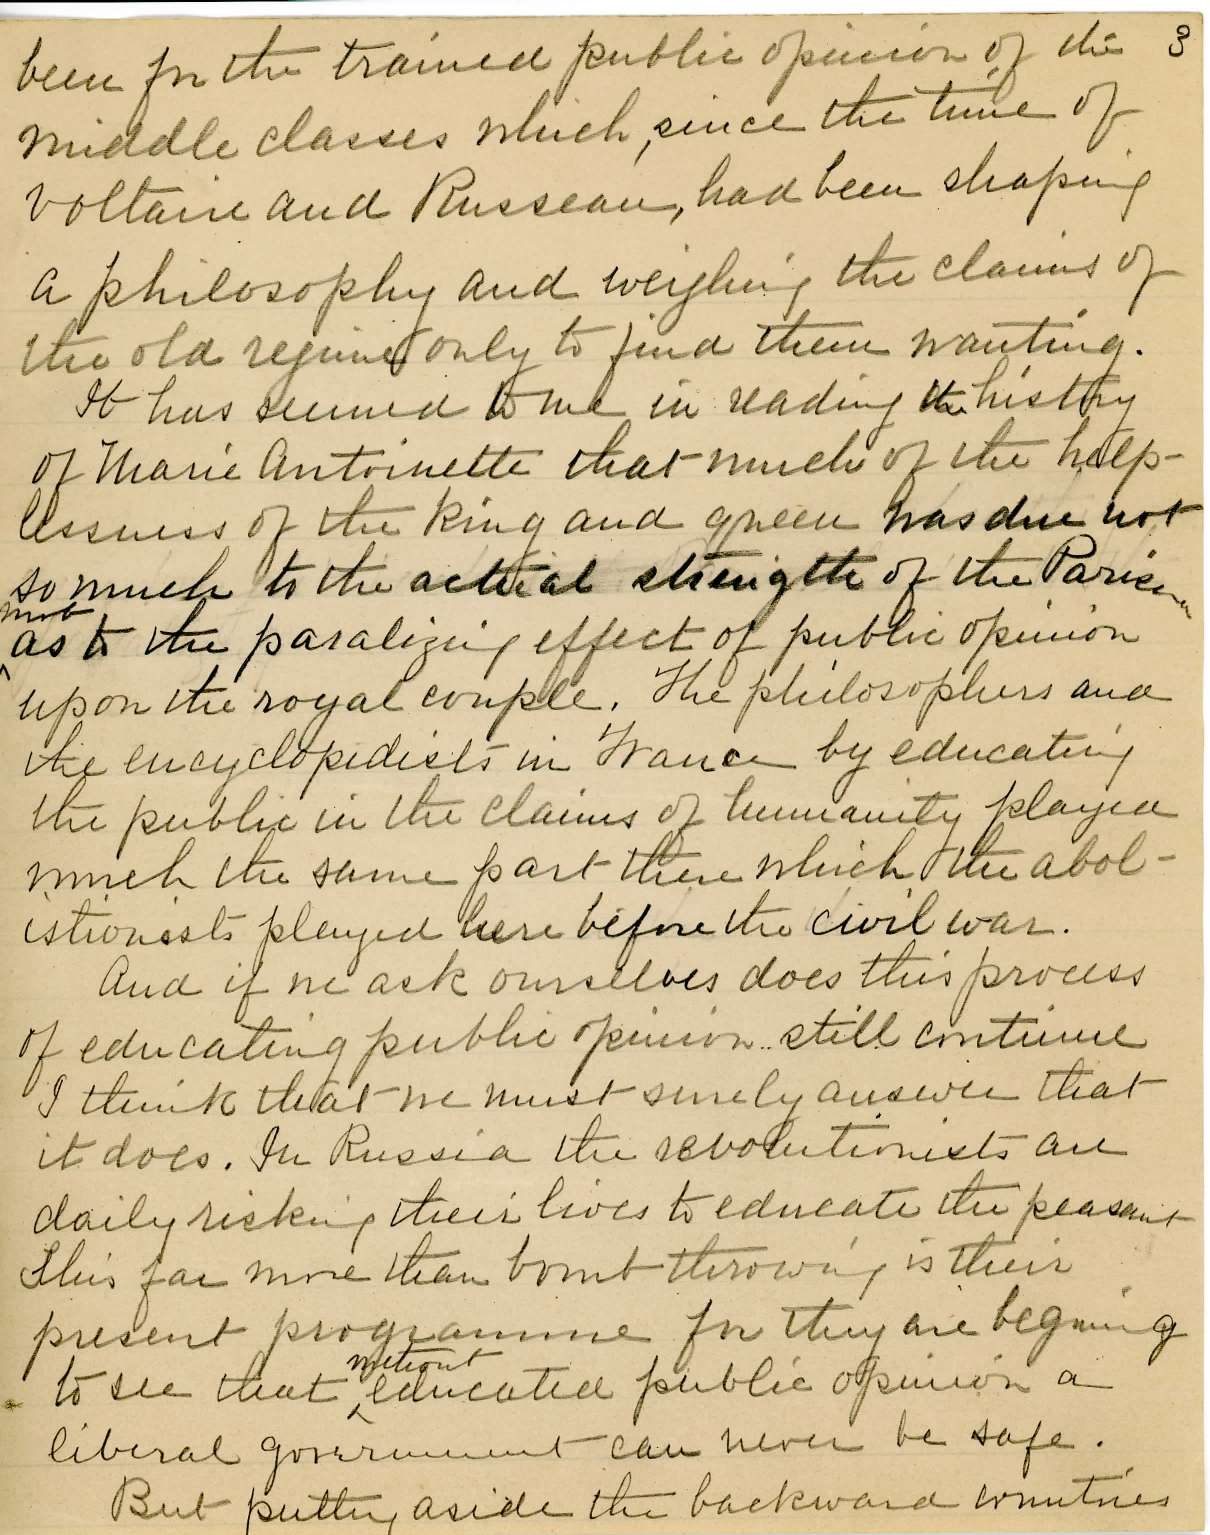 been for the trained public opinion of the 3
middle classes which, since the time of
Voltaire and Russeau, had been shaping
a philosophy and weighing the claims of
the old regime only to find them wanting.
It has seemed to me in reading the history
of Marie Antoinette that much of the help-
lessness of the king and queen was due not
so much to the actual strength of the Parisian
mob
as to the paralizing effect of public opinion
upon the royal couple. The philosophers and
the encyclopedists in France by educating
the public in the claims of humanity played
much the same part there which the abol-
istionists played here before the civil war.
And if we ask ourselves does this process
of educating public opinion still continue
I think that we must surely answer that
it does. In Russia the revolutionists are
daily risking their lives to educate the peasant
This far more than bomb throwing is their
present programme for they are begining
without
to see that educated public opinion a
liberal government can never be safe.
But putting aside the backward countries